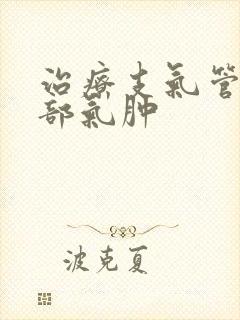 治療支氣管
部氣肿
波克夏